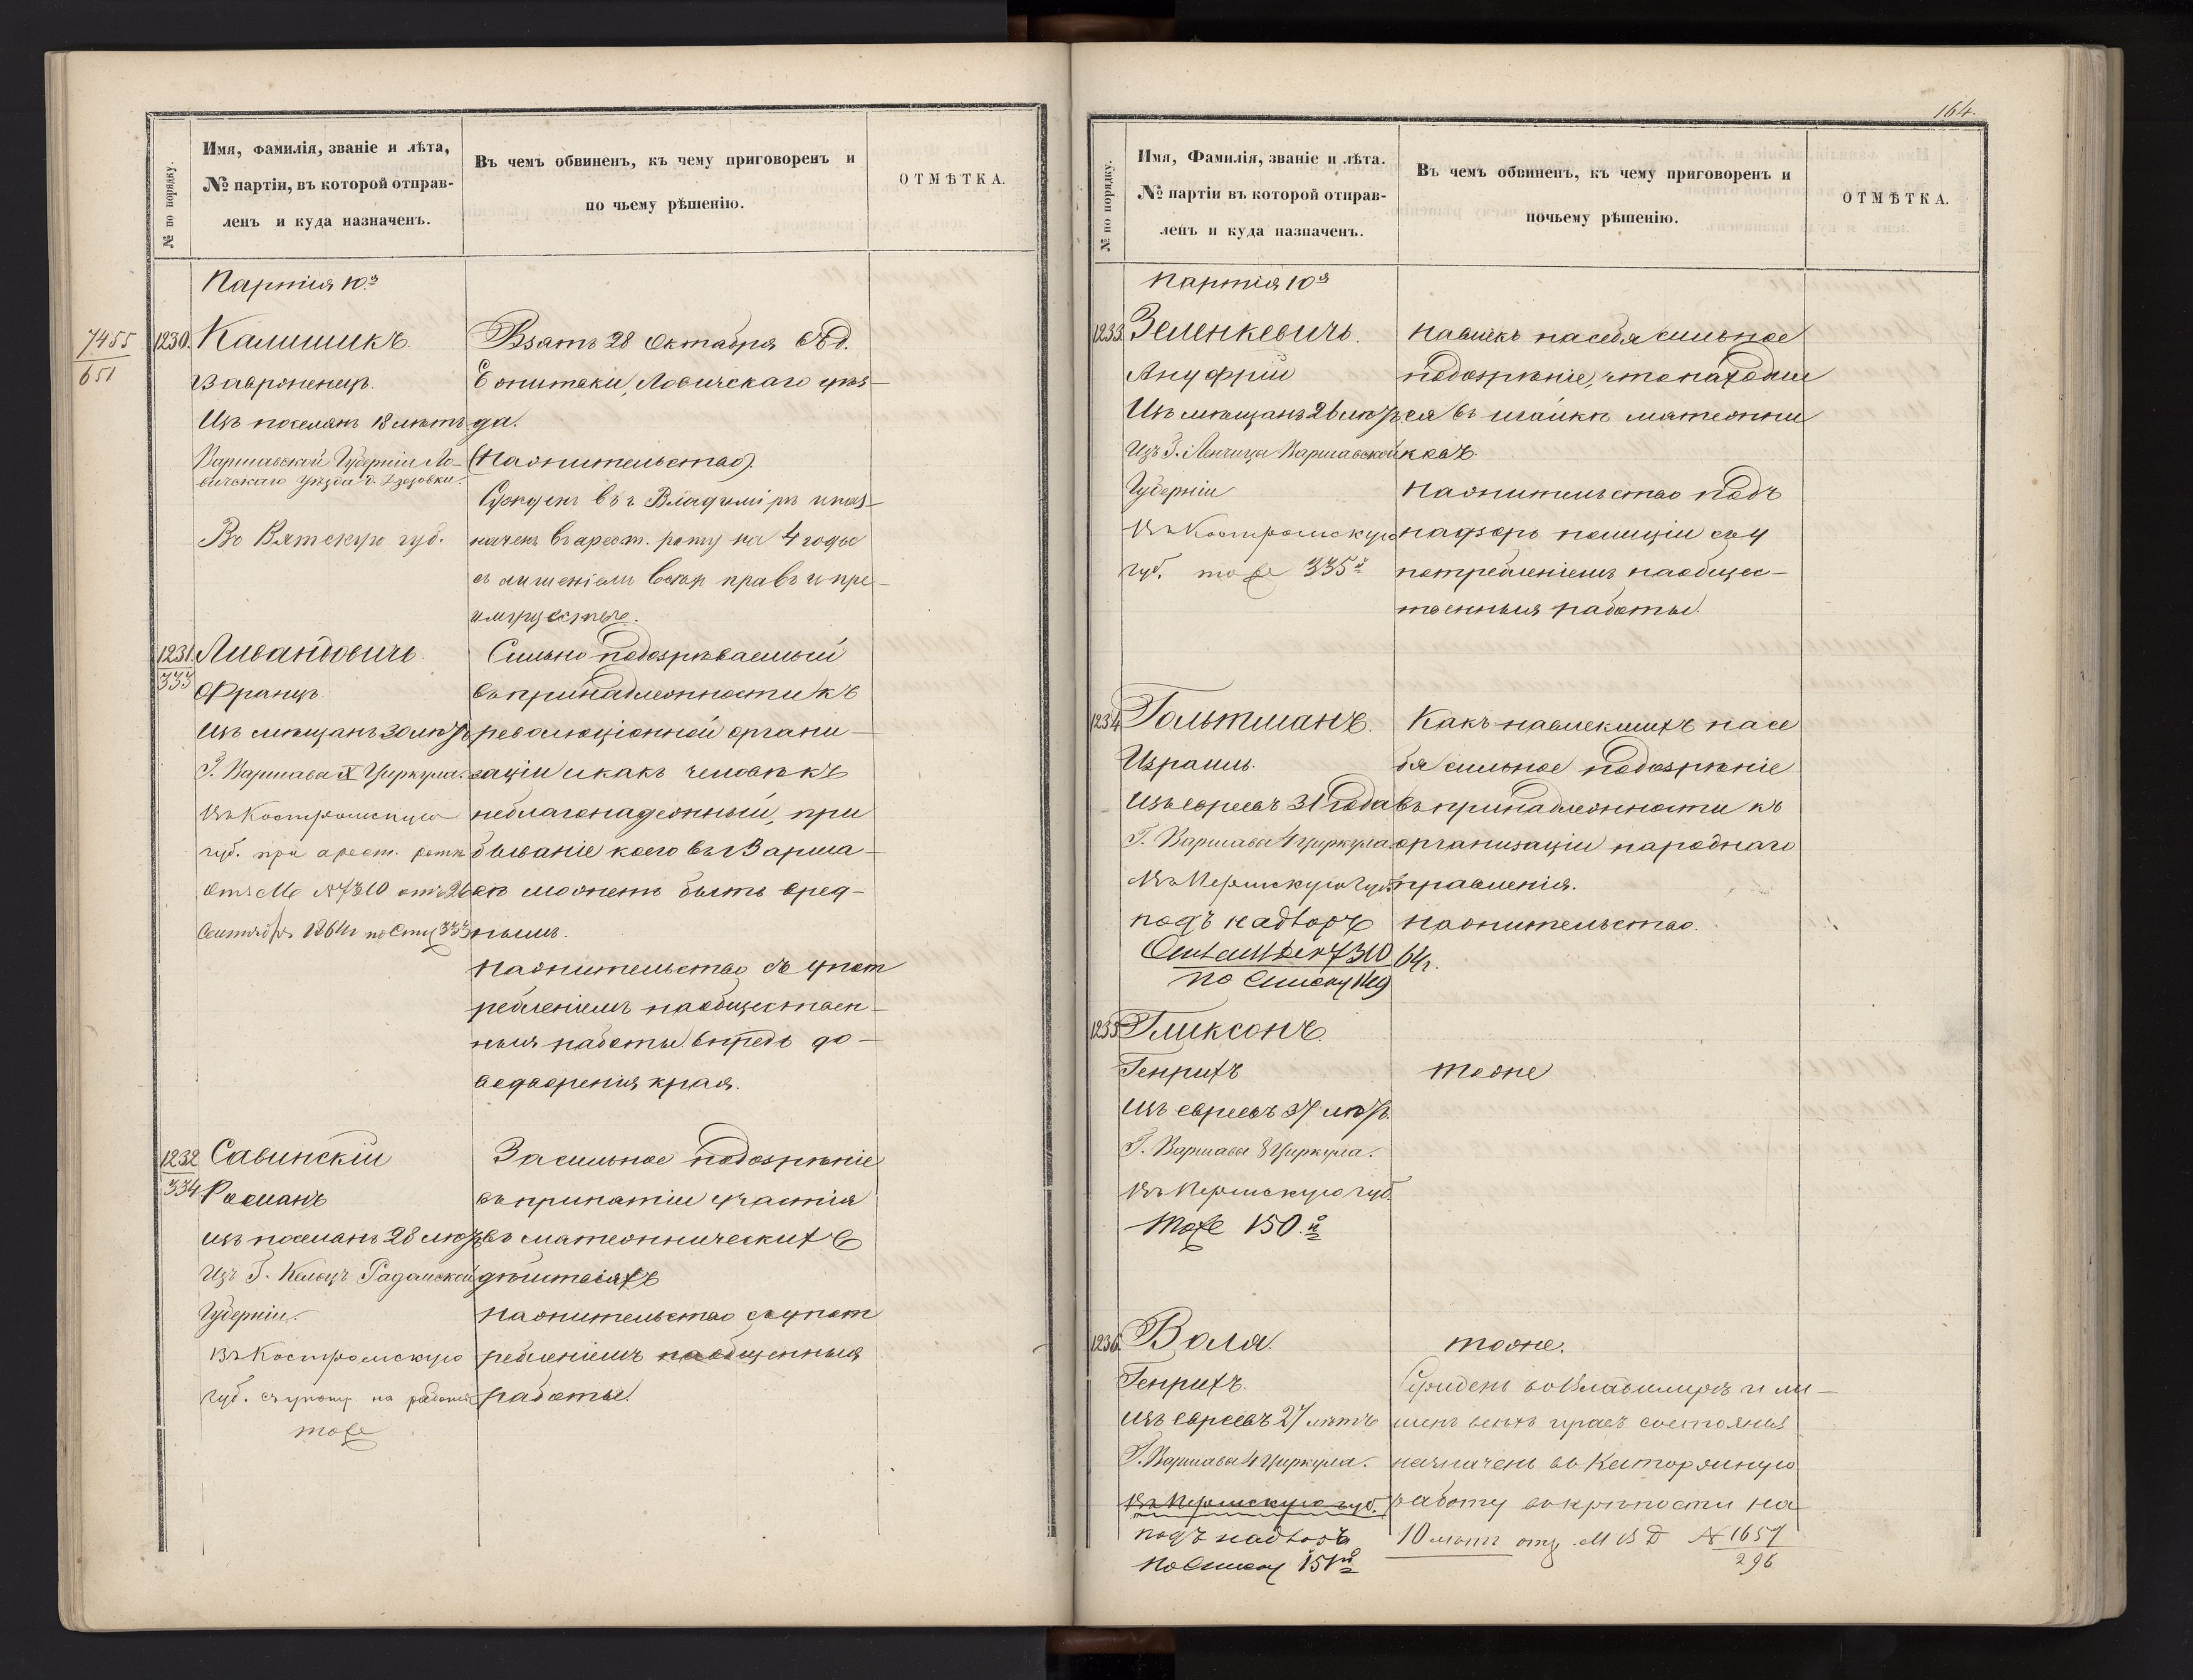 № по порядку.
Имя, фамилія, званіе и лѣта,
№ партіи, въ которой отправ-
ленъ и куда назначенъ.
Въ чемъ обвиненъ, къ чему приговоренъ и
по чьему рѣшенію.
ОТМѢТКА.
Партія 10я
7455
651
1230.
Калишикъ
Вавроненцъ.
Изъ поселянъ 18 лѣтъ
Варшавской Губерніи Ло-
вичскаго Уѣзда д.
Въ Вятскую губ.
Взятъ 28 Октября
Ловичскаго уѣз-
да.
(На жительство).
Сужденъ въ г. Владимірѣ и наз-
наченъ въ арест. роту на 4 года
съ лишеніемъ всѣхъ правъ и пре-
имуществъ.
1231.
333
Ливандовичъ
Францъ.
Изъ мѣщанъ 30 лѣтъ
Г. Варшава X Циркула.
Въ Костромскую
губ. при арест. ротѣ
отъ Мв №7310 отъ 26
Сентября 1864 г по Спис 333
Сильно подозрѣваемый
въ принадлежности къ
революціонной органи-
заціи и какъ человѣкъ
неблагонадежный, при
бываніе коего въ г Варша-
вѣ можетъ быть вред-
нымъ.
На жительство съ упот
ребленіемъ на обществен-
ныя работы впредь до-
водворенія края.
1232
334
Савинскій
Романъ
изъ поселянъ 28 лѣтъ
Изъ Г. Кельцъ Радомской
Губерніи.
Въ Костромскую
Губ. съ употр. на работы
тоже
За сильное подозрѣніе
въ принятіи участія
въ мятежническихъ
дѣйствіяхъ
На жительство съ упот
ребленіемъ на общенныя
работы.
164.
№ по порядку.
Имя, Фамилія, званіе и лѣта.
№ партіи въ которой отправ-
ленъ и куда назначенъ.
Въ чемъ обвиненъ, къ чему приговоренъ и
почьему рѣшенію.
ОТМѢТКА.
Партія 10я
1233.
Зеленкевичъ.
Ануфрій
Изъ мѣщанъ 26 лѣтъ
Изъ Г. Ленчица Варшавской
Губерніи
Въ Костромскую
губ. тоже 335й
Навлекъ на себя сильное
подозрѣніе, что находил
ся въ шайкѣ мятежни
ковъ.
На жительство подъ
надзоръ полиціи съ у
потребленіемъ на общес-
твенныя работы.
1234
Гольтманъ.
Израиль.
Изъ евреевъ 31 года
Г. Варшава 4 циркула.
Въ Пермскую Губ.
подъ надзоръ
№ 7310 64 г.
По Списку 149
Какъ навлекшихъ на се
бя сильное подозрѣніе
въ принадлежности къ
организаціи народнаго
правленія.
На жительство.
1235
Гликсонъ.
Генрихъ
Изъ евреевъ 37 лѣтъ.
Г. Варшава 8 Циркула.
Въ Пермскую губ.
Тоже 150.й
тоже
1236.
Воля.
Генрихъ.
Изъ евреевъ 27 лѣтъ
Г. Варшава 4 Циркула.
Въ Пермскую губ.
подъ надзоръ
По Списку 151й
тоже.
Сужденъ во Владимирѣ и ли-
шенъ всѣхъ правъ состоянія
назначенъ въ Каторжную
работу въ крѣпости на
10 лѣтъ отз. М В Д № 1657
296